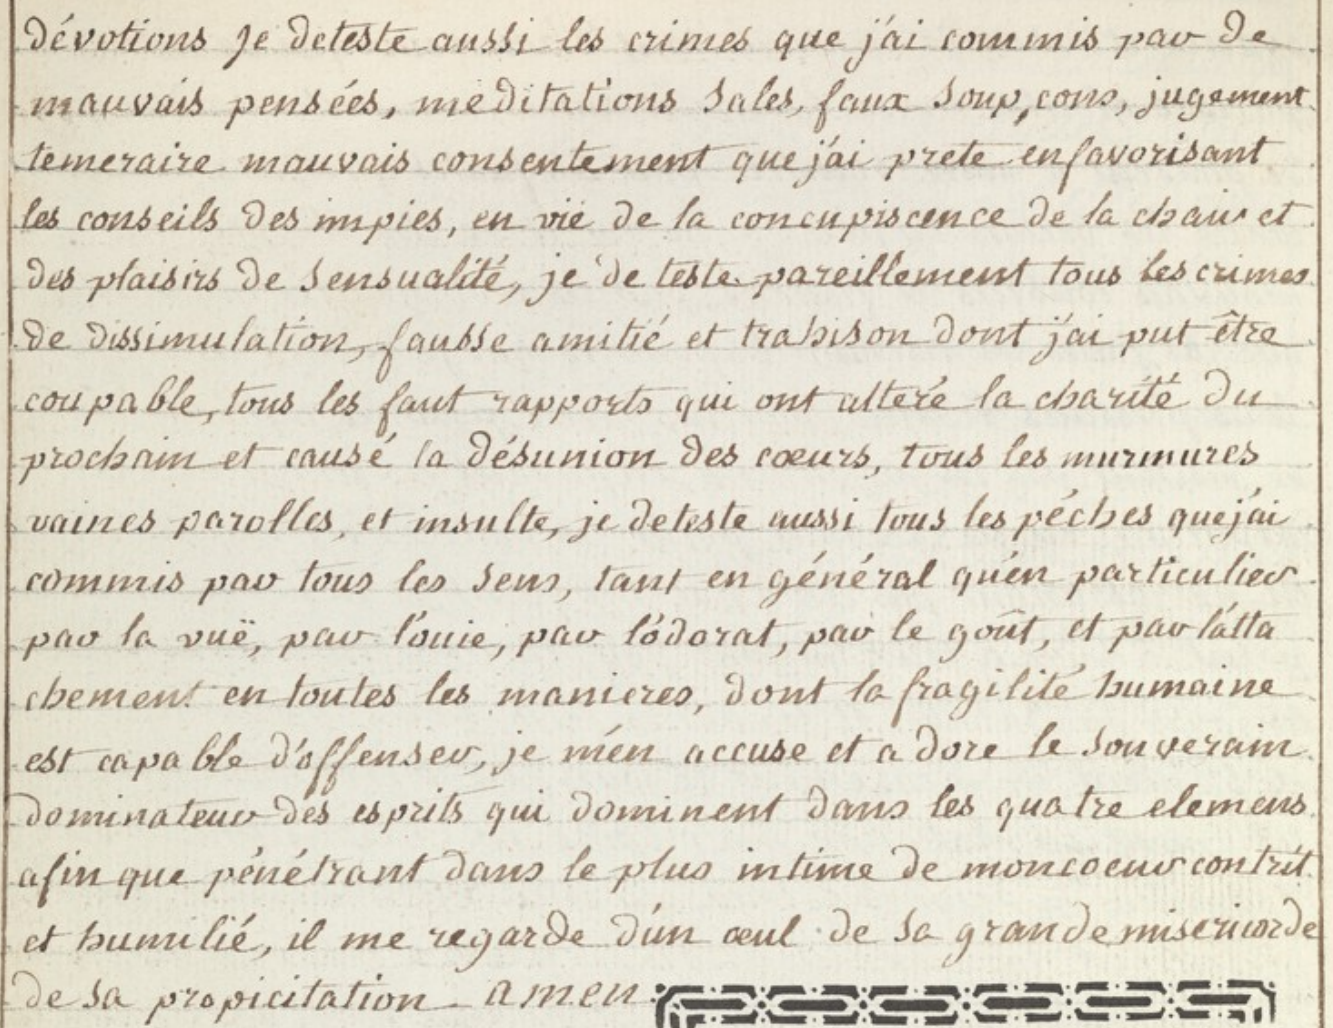 dévotions je deteste aussi les crimes que j'ai commis par de
mauvais pensées, méditations sales, faux soupçons, jugement
temeraire mauvais consentement que j'ai prete en favorisant
les conseils des impies, en vie de la concupiscence de la chair et
des plaisirs de sensualité, je de teste pareillement tous les crimes
de dissimulation, fausse amitié et trahison dont j'ai put être
coupable, tous les faut rapports qui ont alteré la charité du
prochain et causé la désunion des cœurs, tous les murmures
vaines parolles, et insulte, je deteste aussi tous les péches que j'ai
commis par tous les sens, tant en général qu'en particulier
par la vuë, par l'ouie, par l'odorat, par le goût, et par l'atta
chement en toutes les manieres, dont la fragilité humaine
est capable d'offenser, je m'en accuse et adore le souverain
dominateur des esprits qui dominent dans les quatre elemens
afin que pénétrant dans le plus intime de mon coeur contrit
et humilié, il me regarde d'un œul de sa grande misericorde
de sa propicitation amen.